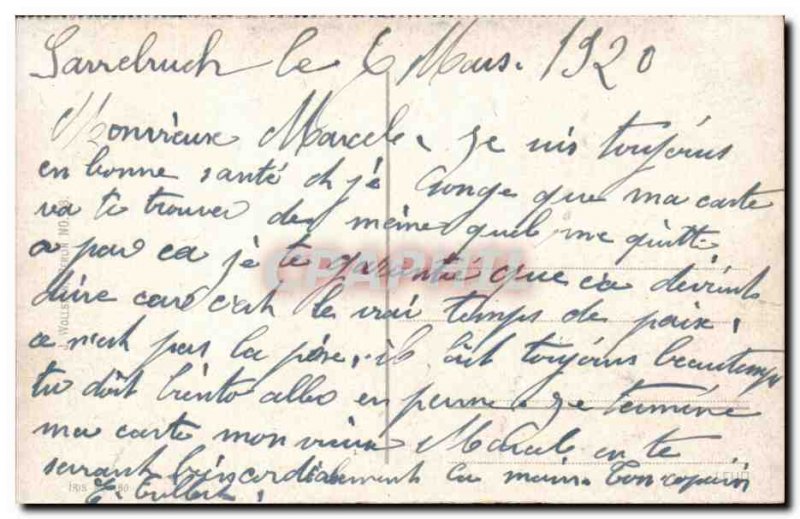 Sarrebruch le 6 Mars. 1920
Monvieux Marcel. je uis toujours
en bonne santé et jé conge que ma carte
va te trouver de meine quel me quitte
a par ca jé te garantie que ca devient
dure car c'est le vrai temps de paix,
ce n'est pas la père, il bait toujours beautemps
tu doit binto alles en perme. je termine
ma carte mon vieux Marcel en te
serrant biencordialement la main. Ton copain
E.
CPARTI